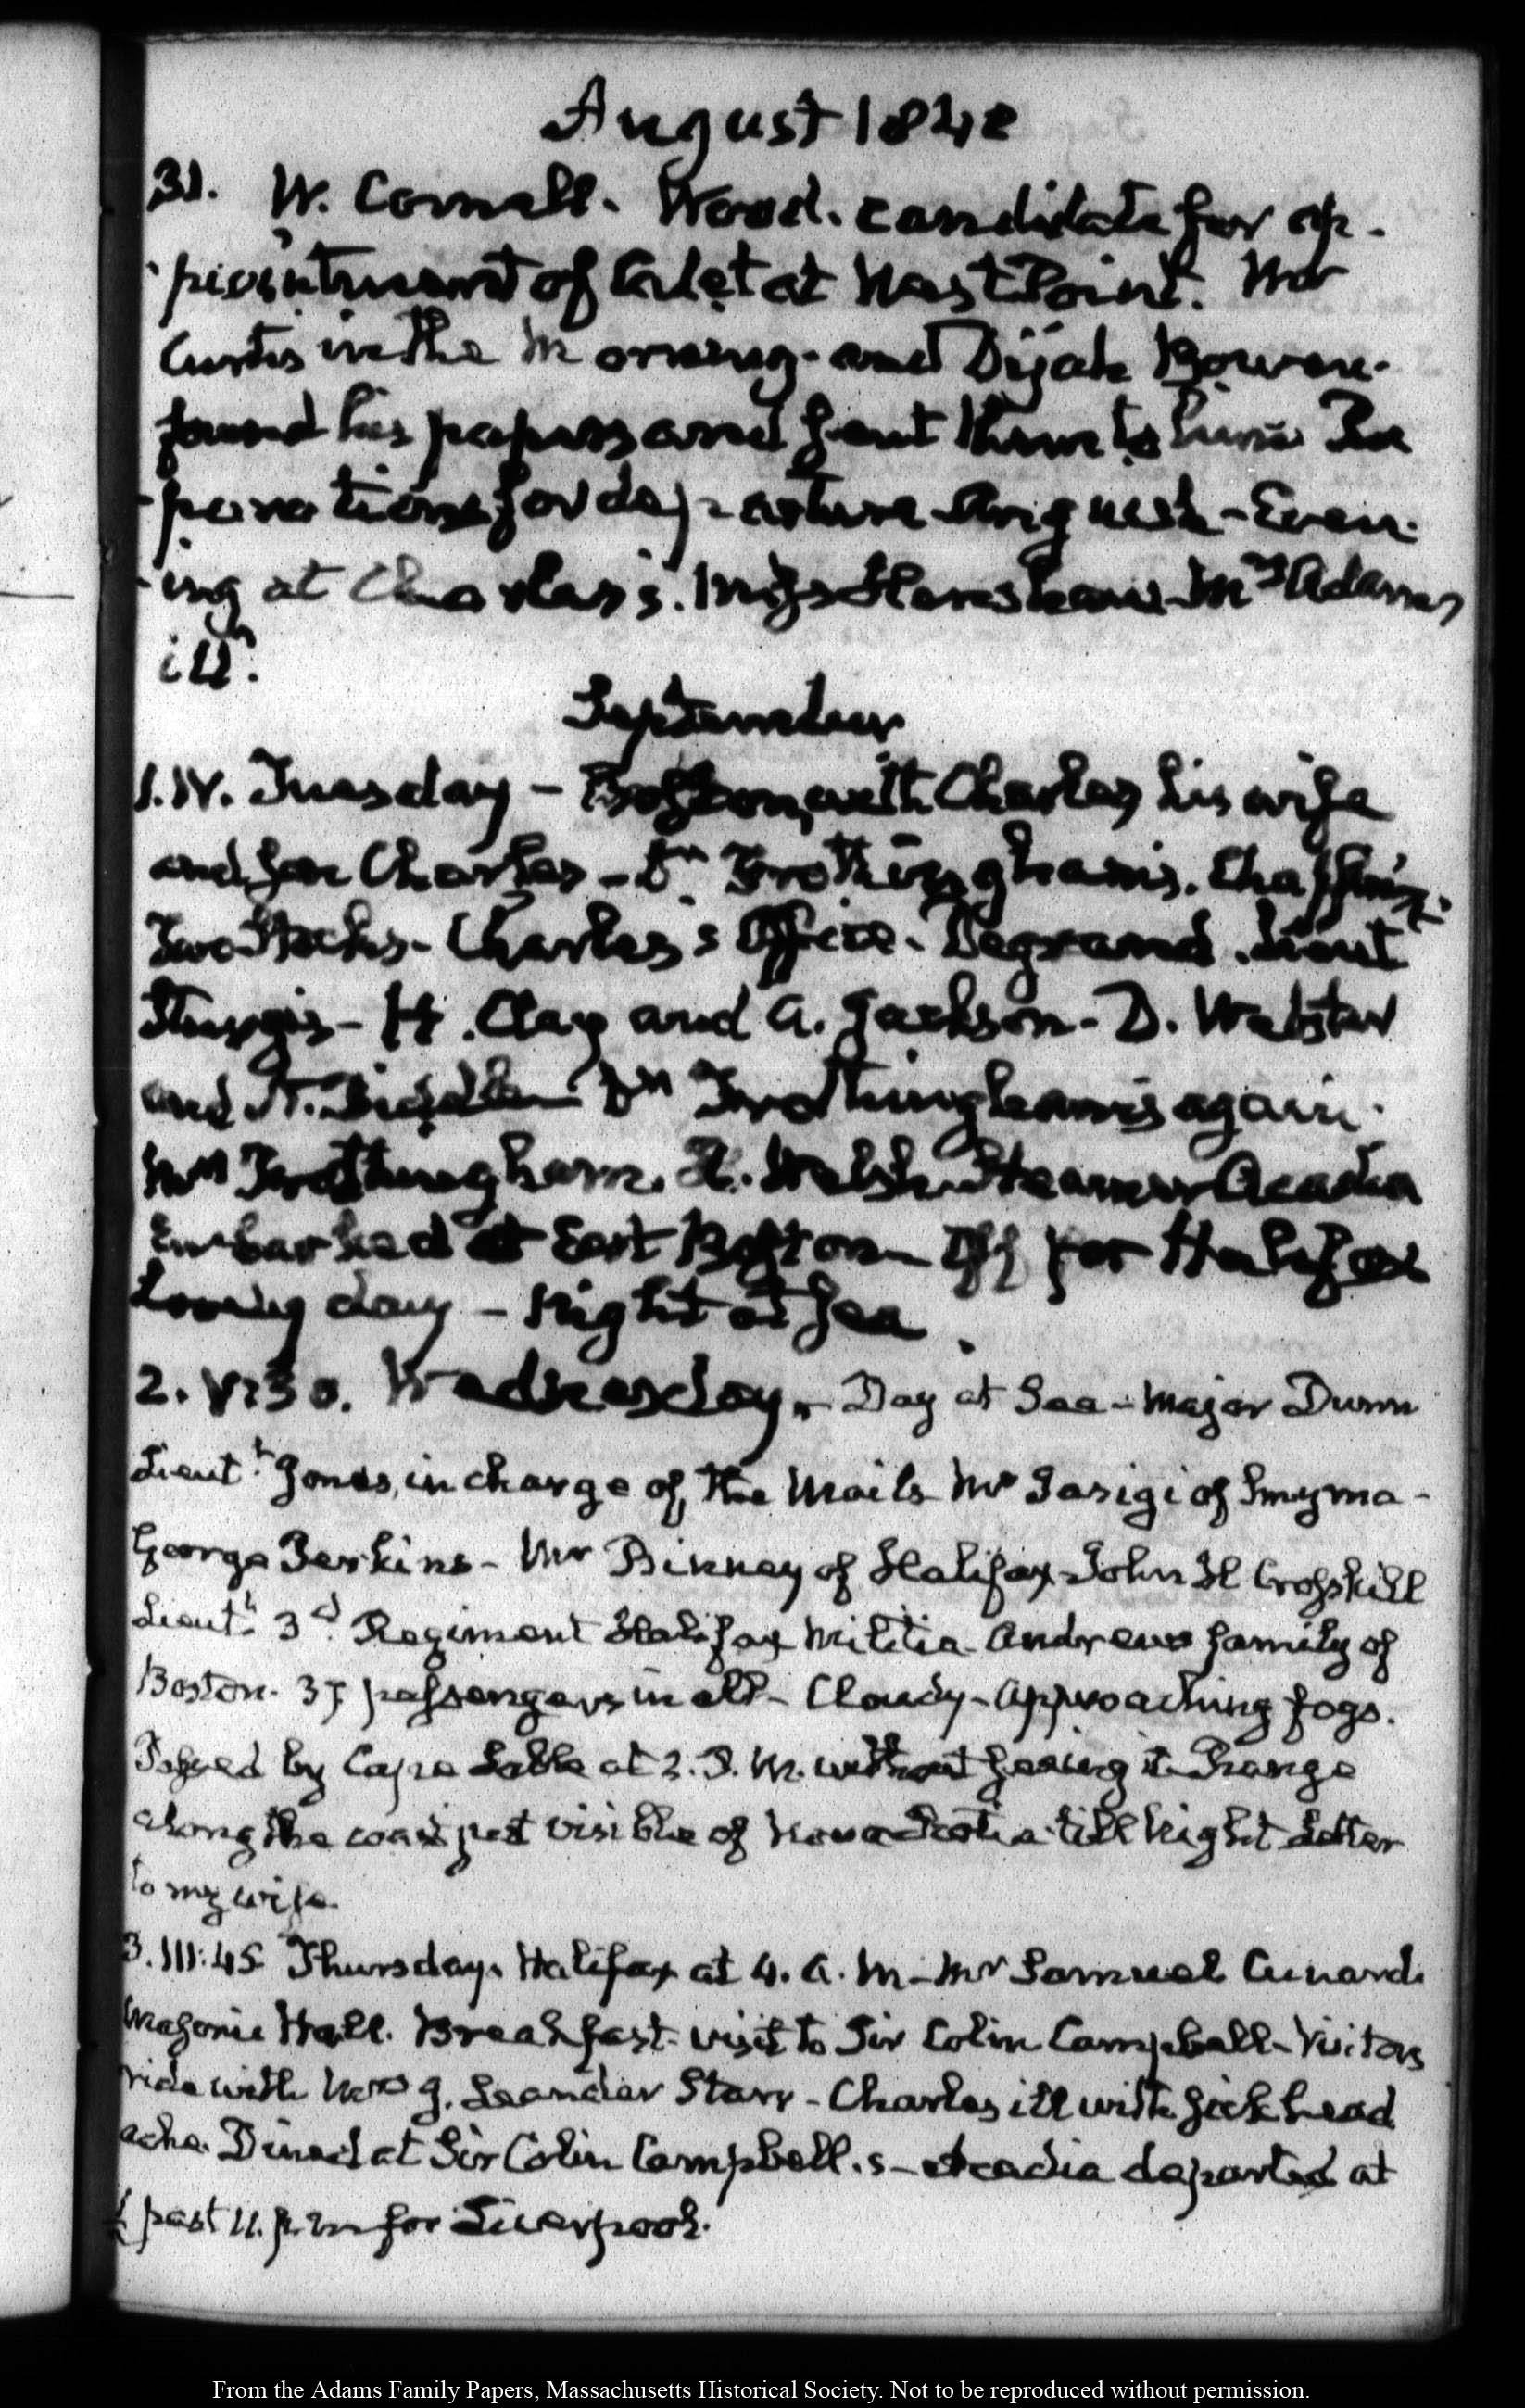 August 1840
31. W. Cornell. Wood. candidate for ap-
-pointment of Cadet at West Point. Mr
Curtis in the Morning and Dijah Bowen.
found his papers and sent them to him Pre
-parations for departure Anguish - Even-
-ing at Charles's. Miss Henshaw Mrs Adams
ill.
September
1. IV. Tuesday - Boston, with Charles his wife
and son Charles - Dr Frothingham's.
Two Stocks - Charles's Office. Degrand. Lieutt
Sturgis - H. Clay and A. Jackson - D. Webster
and N. Biddle Dr Frothingham's again.
Mrs Frothingham. H. Welsh. Steamer Acadia
Embarked at East Boston Off for Halifax
day - Night at Sea.
2. V:30. Wednesday, Day at Sea - Major Dunn
Lieutt Jones, in charge of the Mails Mr Iasigi of Smyrna -
George Perkins - Mr Binney of Halifax John H Crosskill
Lieutt 3d Regiment Halifax Militia Andrews family of
Boston. 37 passengers in all - Cloudy - Approaching fogs.
Passed by Cape Sable at 2. P.M. without seeing it Range
along the coast just visible of Nova Scotia till Night Letter
to my wife.
3. III:45 Thursday. Halifax at 4. A.M - Mr Samuel Cunard.
Masonic Hall. Breakfast. visit to Sir Colin Campbell - Visitors
ride with J. Leander Starr - Charles ill with sick head
ache. Dined at Sir Colin Campbell.s - Acadia departed at
½ past 11. p.m for Liverpool.
From the Adams Family Papers, Massachusetts Historical Society. Not to be reproduced without permission.